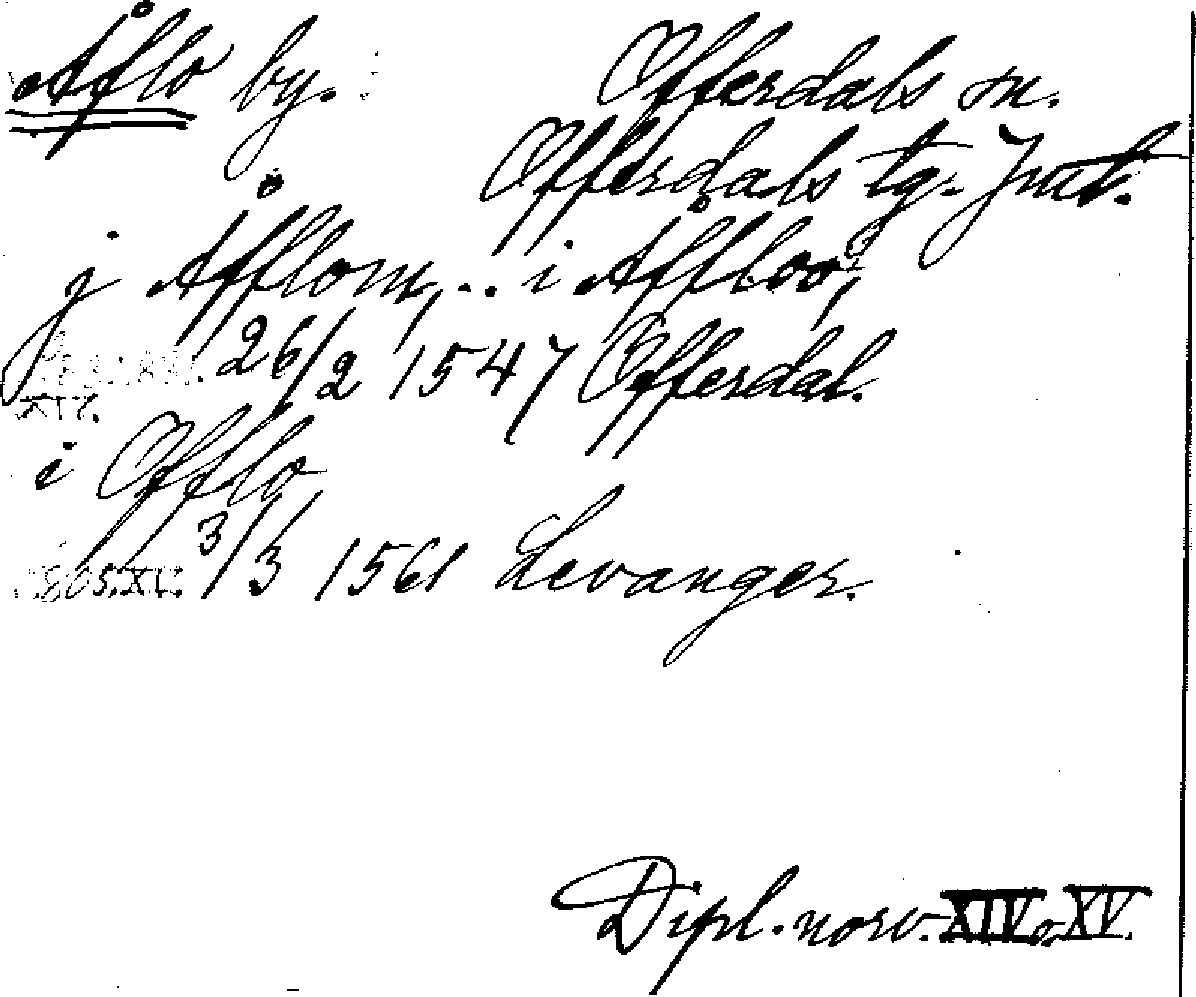 Åflo by. Offerdals sn.
Offerdals tg. Jmt.
j Åfflom, .. i Åffloo,
26/2 1547 Offerdal.
XIV.
i Offlo
805.XV. 3/3 1561 Levanger.
Dipl. norv. XIV o. XV.